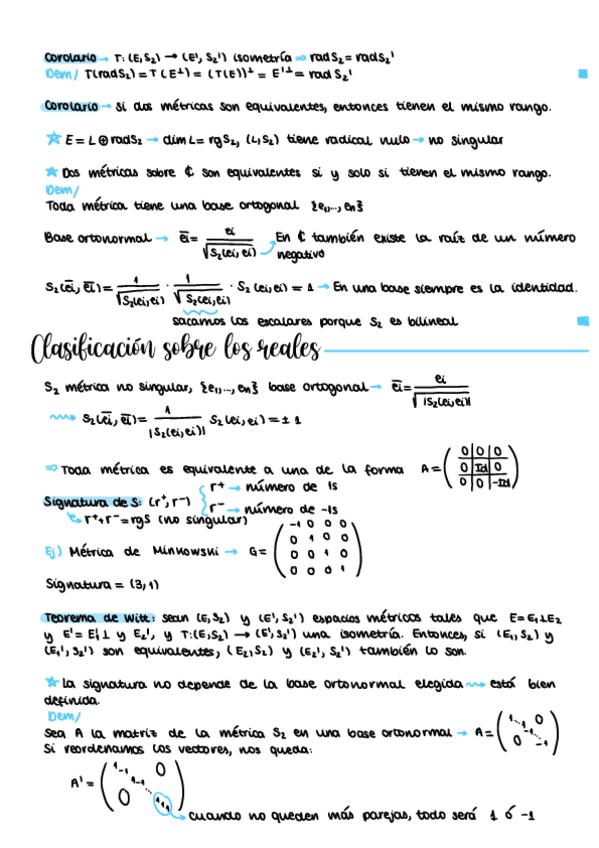 Corolario → T: (E, S₂) → (E', S₂') isometría ⇒ rad S₂ = rad S₂'
Dem/ T(rad S₂) = T(E⊥) = (T(E))⊥ = E'⊥ = rad S₂'
Corolario → Si dos métricas son equivalentes, entonces tienen el mismo rango.
☆ E = L ⊕ rad S₂ → dim L = rg S₂, (L, S₂) tiene radical nulo → no singular
★ Dos métricas sobre ℂ son equivalentes si y solo si tienen el mismo rango.
Dem/
Toda métrica tiene una base ortogonal {e₁, ..., eₙ}
Base ortonormal → ēi = ei / √S₂(ei, ei) → En ℂ también existe la raíz de un número negativo
S₂(ēi, ēi) = 1/√S₂(ei, ei) · 1/√S₂(ei, ei) · S₂(ei, ei) = 1 → En una base siempre es la identidad.
sacamos los escalares porque S₂ es bilineal
Clasificación sobre los reales
S₂ métrica no singular, {e₁, ..., eₙ} base ortogonal → ēi = ei / √|S₂(ei, ei)|
⇝ S₂(ēi, ēi) = 1/|S₂(ei, ei)| S₂(ei, ei) = ± 1
⇒ Toda métrica es equivalente a una de la forma A = (0 0 0 / 0 Id 0 / 0 0 -Id)
Signatura de S: (r⁺, r⁻) { r⁺ → número de 1s
r⁻ → número de -1s
r⁺ + r⁻ = rg S (no singular)
Ej) Métrica de Minkowski → G = (-1 0 0 0 / 0 1 0 0 / 0 0 1 0 / 0 0 0 1)
Signatura = (3, 1)
Teorema de Witt: sean (E, S₂) y (E', S₂') espacios métricos tales que E = E₁ ⊥ E₂
y E' = E₁' ⊥ y E₂', y T: (E, S₂) → (E', S₂') una isometría. Entonces, si (E₁, S₂) y
(E₁', S₂') son equivalentes, (E₂, S₂) y (E₂', S₂') también lo son.
★ La signatura no depende de la base ortonormal elegida ⇝ está bien
definida.
Dem/
Sea A la matriz de la métrica S₂ en una base ortonormal → A = (1 ⋱ 1 0 / 0 -1 ⋱ -1)
Si reordenamos los vectores, nos queda:
A' = (1 -1 0 / 1 -1 ⋱ / 0 1 1 1)
cuando no queden más parejas, todo será 1 ó -1